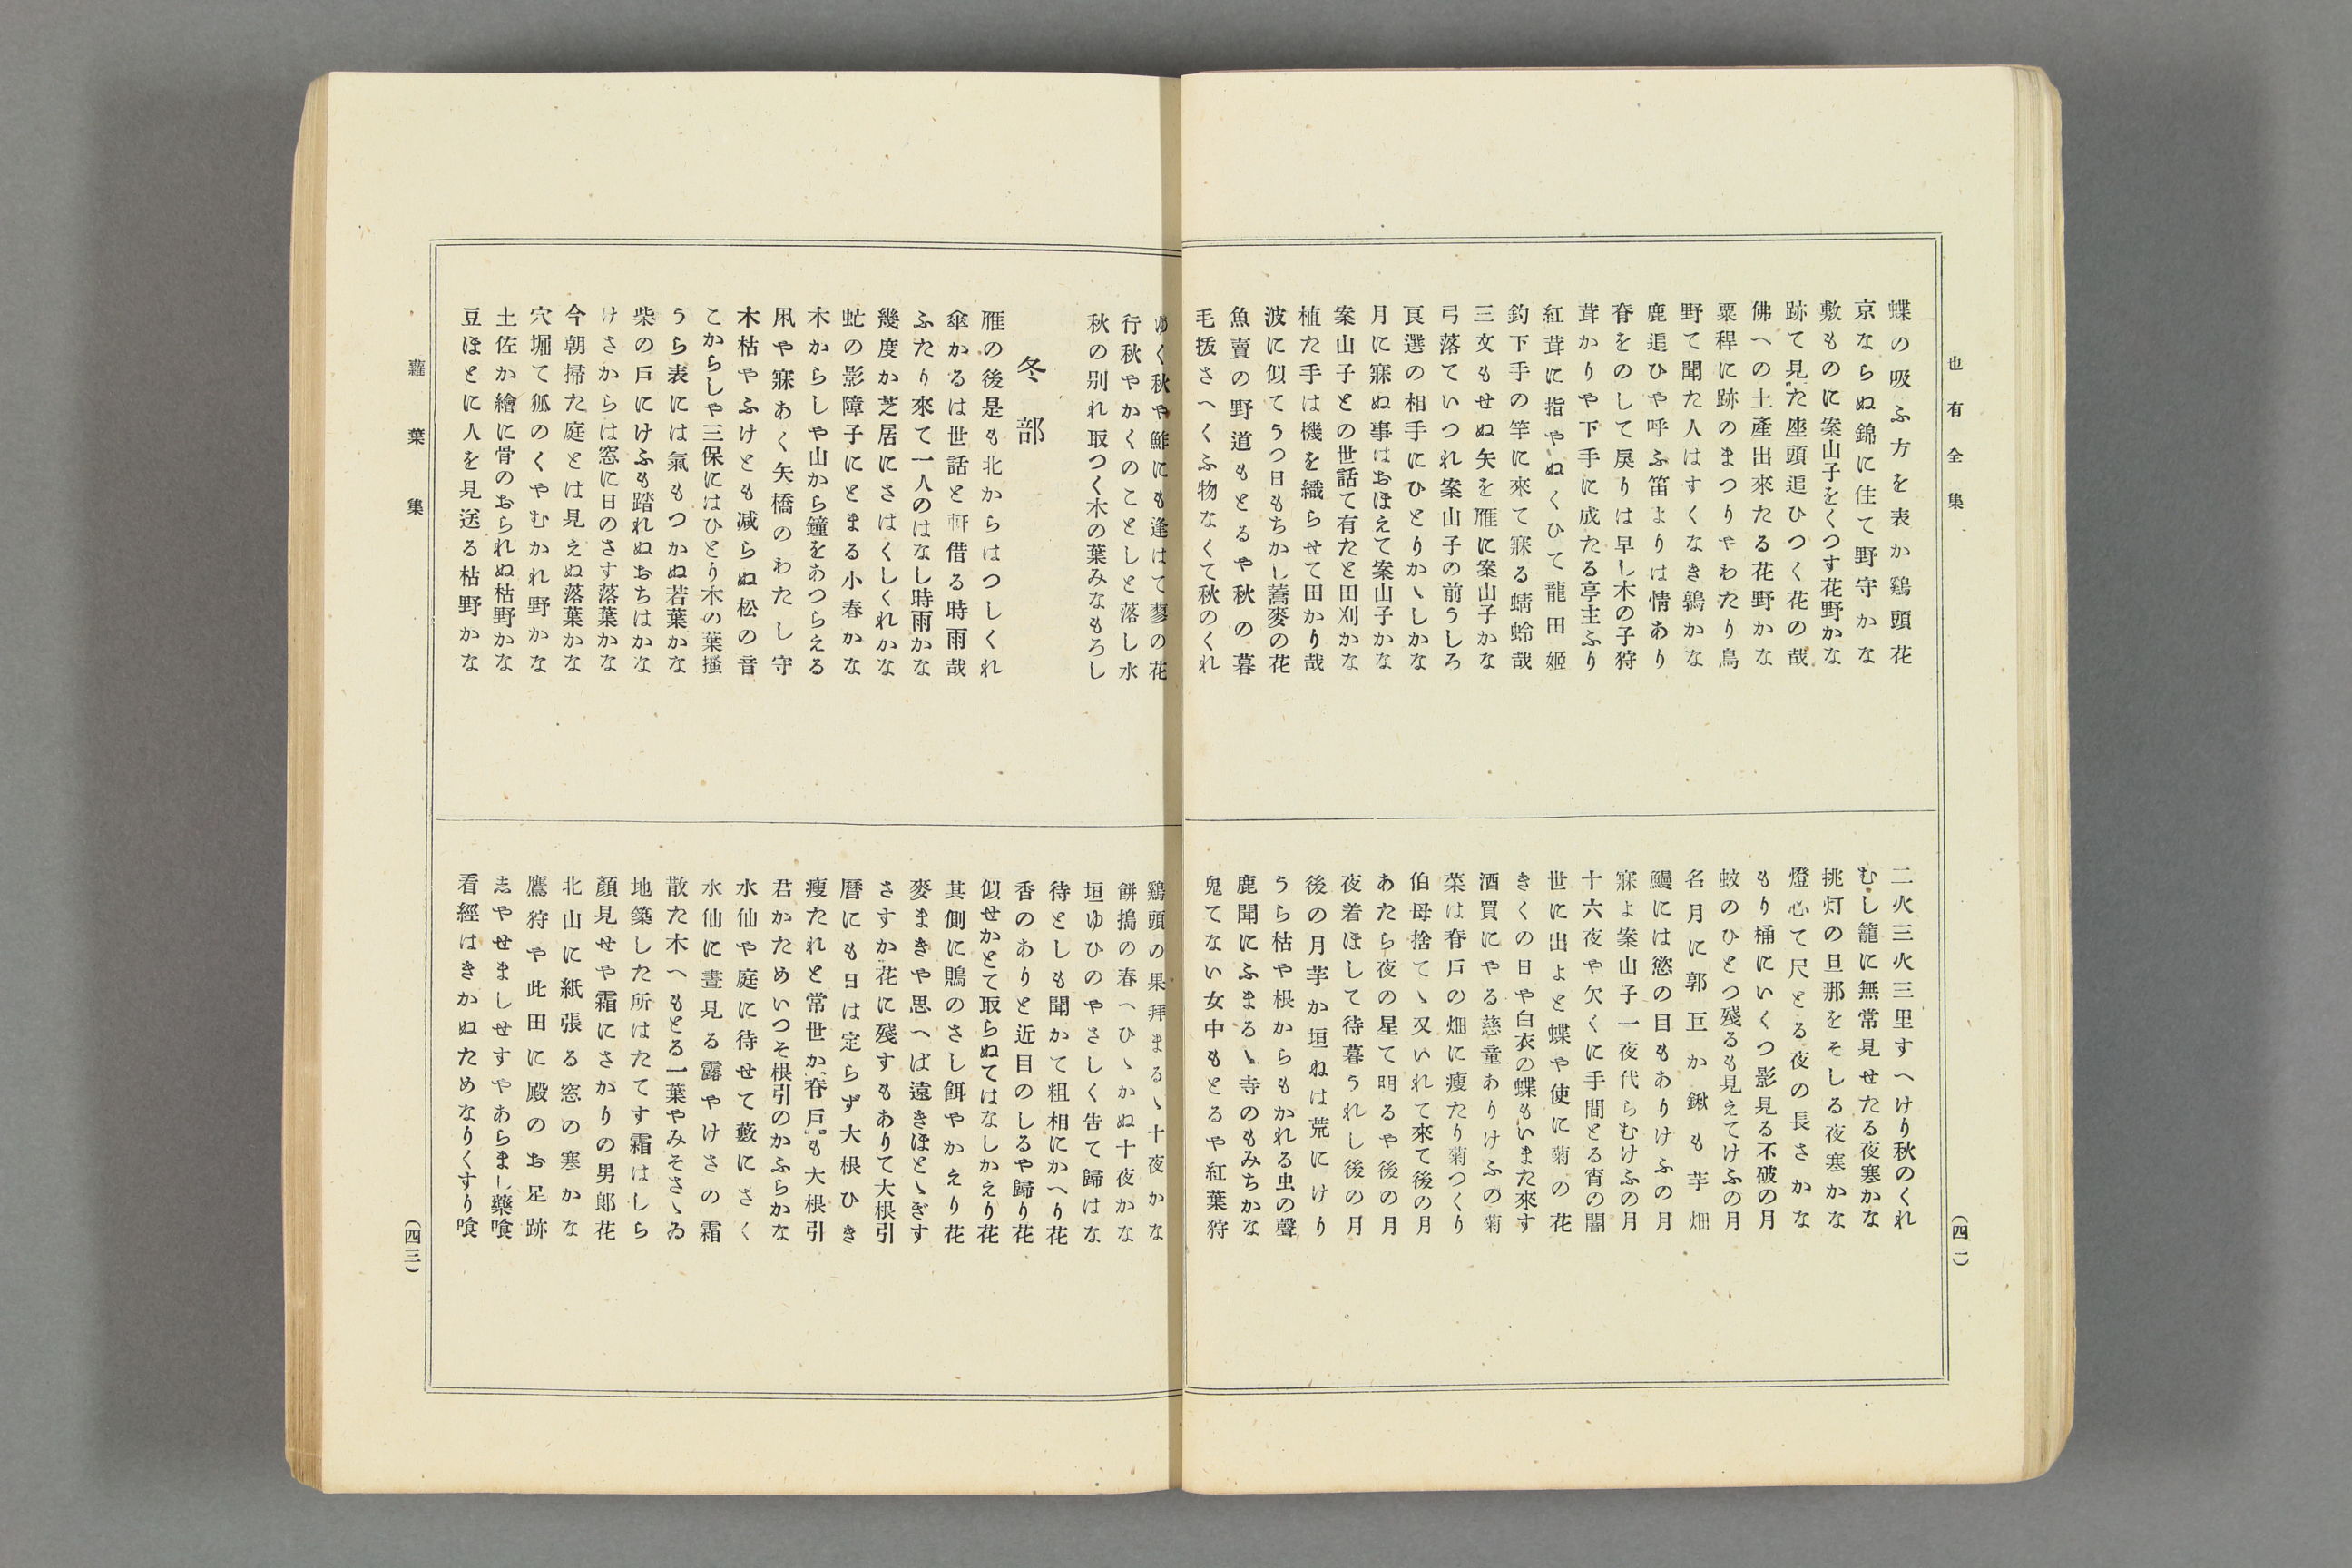 也有全集
蝶の吸ふ方を表か鷄頭花
京ならぬ錦に住て野守かな
敷ものに案山子をくつす花野かな
跡て見た座頭追ひつく花の哉
佛への土產出來たる花野かな
粟稗に跡のまつりやわたり鳥
野て聞た人はすくなき鶉かな
鹿追ひや呼ふ笛よりは情あり
脊をのして戾りは早し木の子狩
茸かりや下手に成たる亭主ふり
紅茸に指やぬくひて龍田姬
釣下手の竿に來て寐る蜻蛉哉
三文もせぬ矢を雁に案山子かな
弓落ていつれ案山子の前うしろ
良選の相手にひとりかゝしかな
月に寐ぬ事はおほえて案山子かな
案山子との世話て有たと田刈かな
植た手は機を織らせて田かり哉
波に似てうつ日もちかし蕎麥の花
魚賣の野道もとるや秋の暮
毛拔さへくふ物なくて秋のくれ
二火三火三里すへけり秋のくれ
むし籠に無常見せたる夜寒かな
挑灯の旦那をそしる夜寒かな
燈心て尺とる夜の長さかな
もり桶にいくつ影見る不破の月
蚊のひとつ殘るも見えてけふの月
名月に郭巨か鍬も芋畑
鰻には慾の目もありけふの月
寐よ案山子一夜代らむけふの月
十六夜や欠くに手間とる宵の闇
世に出よと蝶や使に菊の花
きくの日や白衣の蝶もいまた來す
酒買にやる慈童ありけふの菊
菜は脊戶の畑に瘦たり菊つくり
伯母捨てゝ又いれて來て後の月
あたら夜の星て明るや後の月
夜着ほして待暮うれし後の月
後の月芋か垣ねは荒にけり
うら枯や根からもかれる虫の聲
鹿聞にふまるゝ寺のもみちかな
鬼てない女中もとるや紅葉狩
(四二)
ゆく秋や鮓にも逢はて蓼の花
行秋やかくのことしと落し水
秋の別れ取つく木の葉みなもろし
冬部
雁の後是も北からはつしくれ
傘かるは世話と軒借る時雨哉
ふたり來て一人のはなし時雨かな
幾度か芝居にさはくしくれかな
虻の影障子にとまる小春かな
木からしや山から鐘をあつらえる
凩や寐あく矢橋のわたし守
木枯やふけとも减らぬ松の音
こからしや三保にはひとり木の葉搔
うら表には氣もつかぬ若葉かな
柴の戶にけふも踏れぬおちはかな
けさからは窓に日のさす落葉かな
今朝掃た庭とは見えぬ落葉かな
穴堀て狐のくやむかれ野かな
土佐か繪に骨のおられぬ枯野かな
豆ほとに人を見送る枯野かな
鷄頭の果拜まるゝ十夜かな
餅搗の春へひゝかぬ十夜かな
垣ゆひのやさしく告て歸はな
待としも聞かて粗相にかへり花
香のありと近目のしるや歸り花
似せかとて取らぬてはなしかえり花
其側に鵙のさし餌やかえり花
麥まきや思へば遠きほとゝぎす
さすか花に殘すもありて大根引
曆にも日は定らず大根ひき
瘦たれと常世か脊戶も大根引
君かためいつそ根引のかふらかな
水仙や庭に待せて藪にさく
水仙に晝見る露やけさの霜
散た木へもとる一葉やみそさゝゐ
地築した所はたてす霜はしら
顏見せや霜にさかりの男郎花
北山に紙張る窓の寒かな
鷹狩や此田に殿のお足跡
志やせましせすやあらまし藥喰
看經はきかぬためなりくすり喰
蘿葉集
(四三)